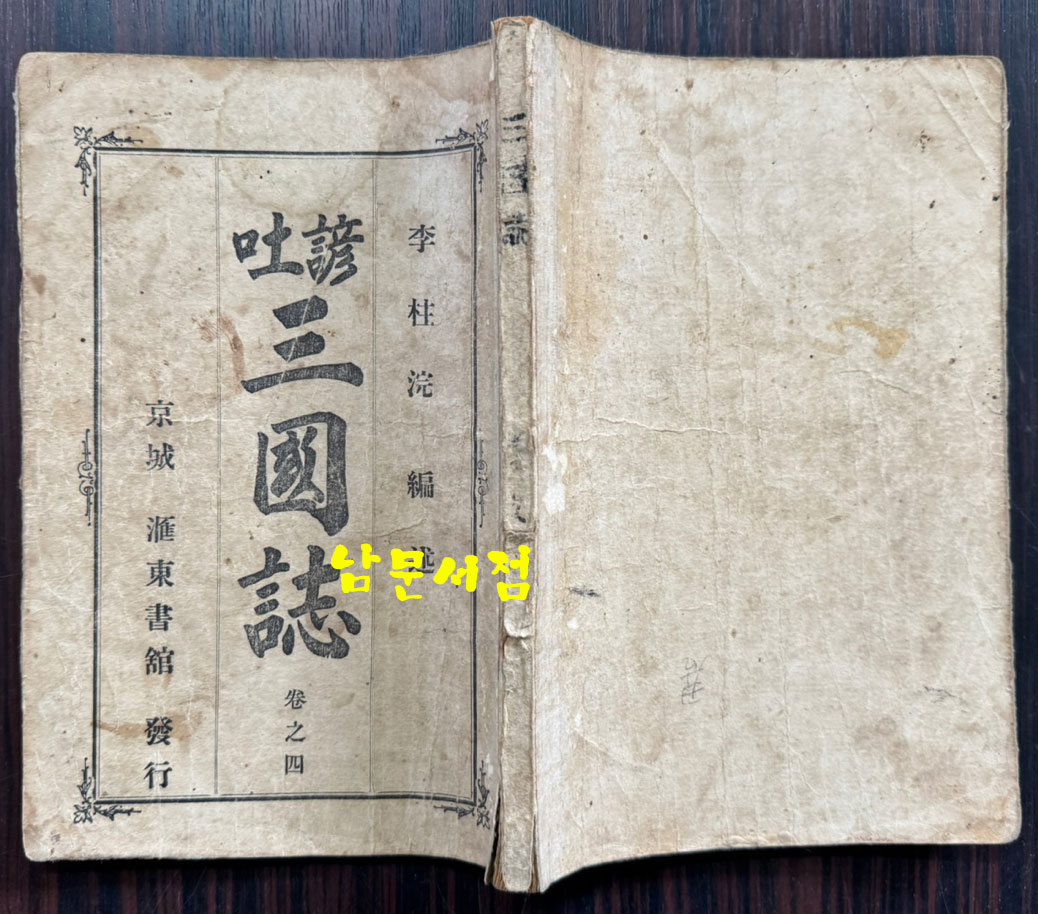 李柱浣編述
諺吐
三國誌
卷之四
京城 滙東書舘 發行
三國誌
남문서점